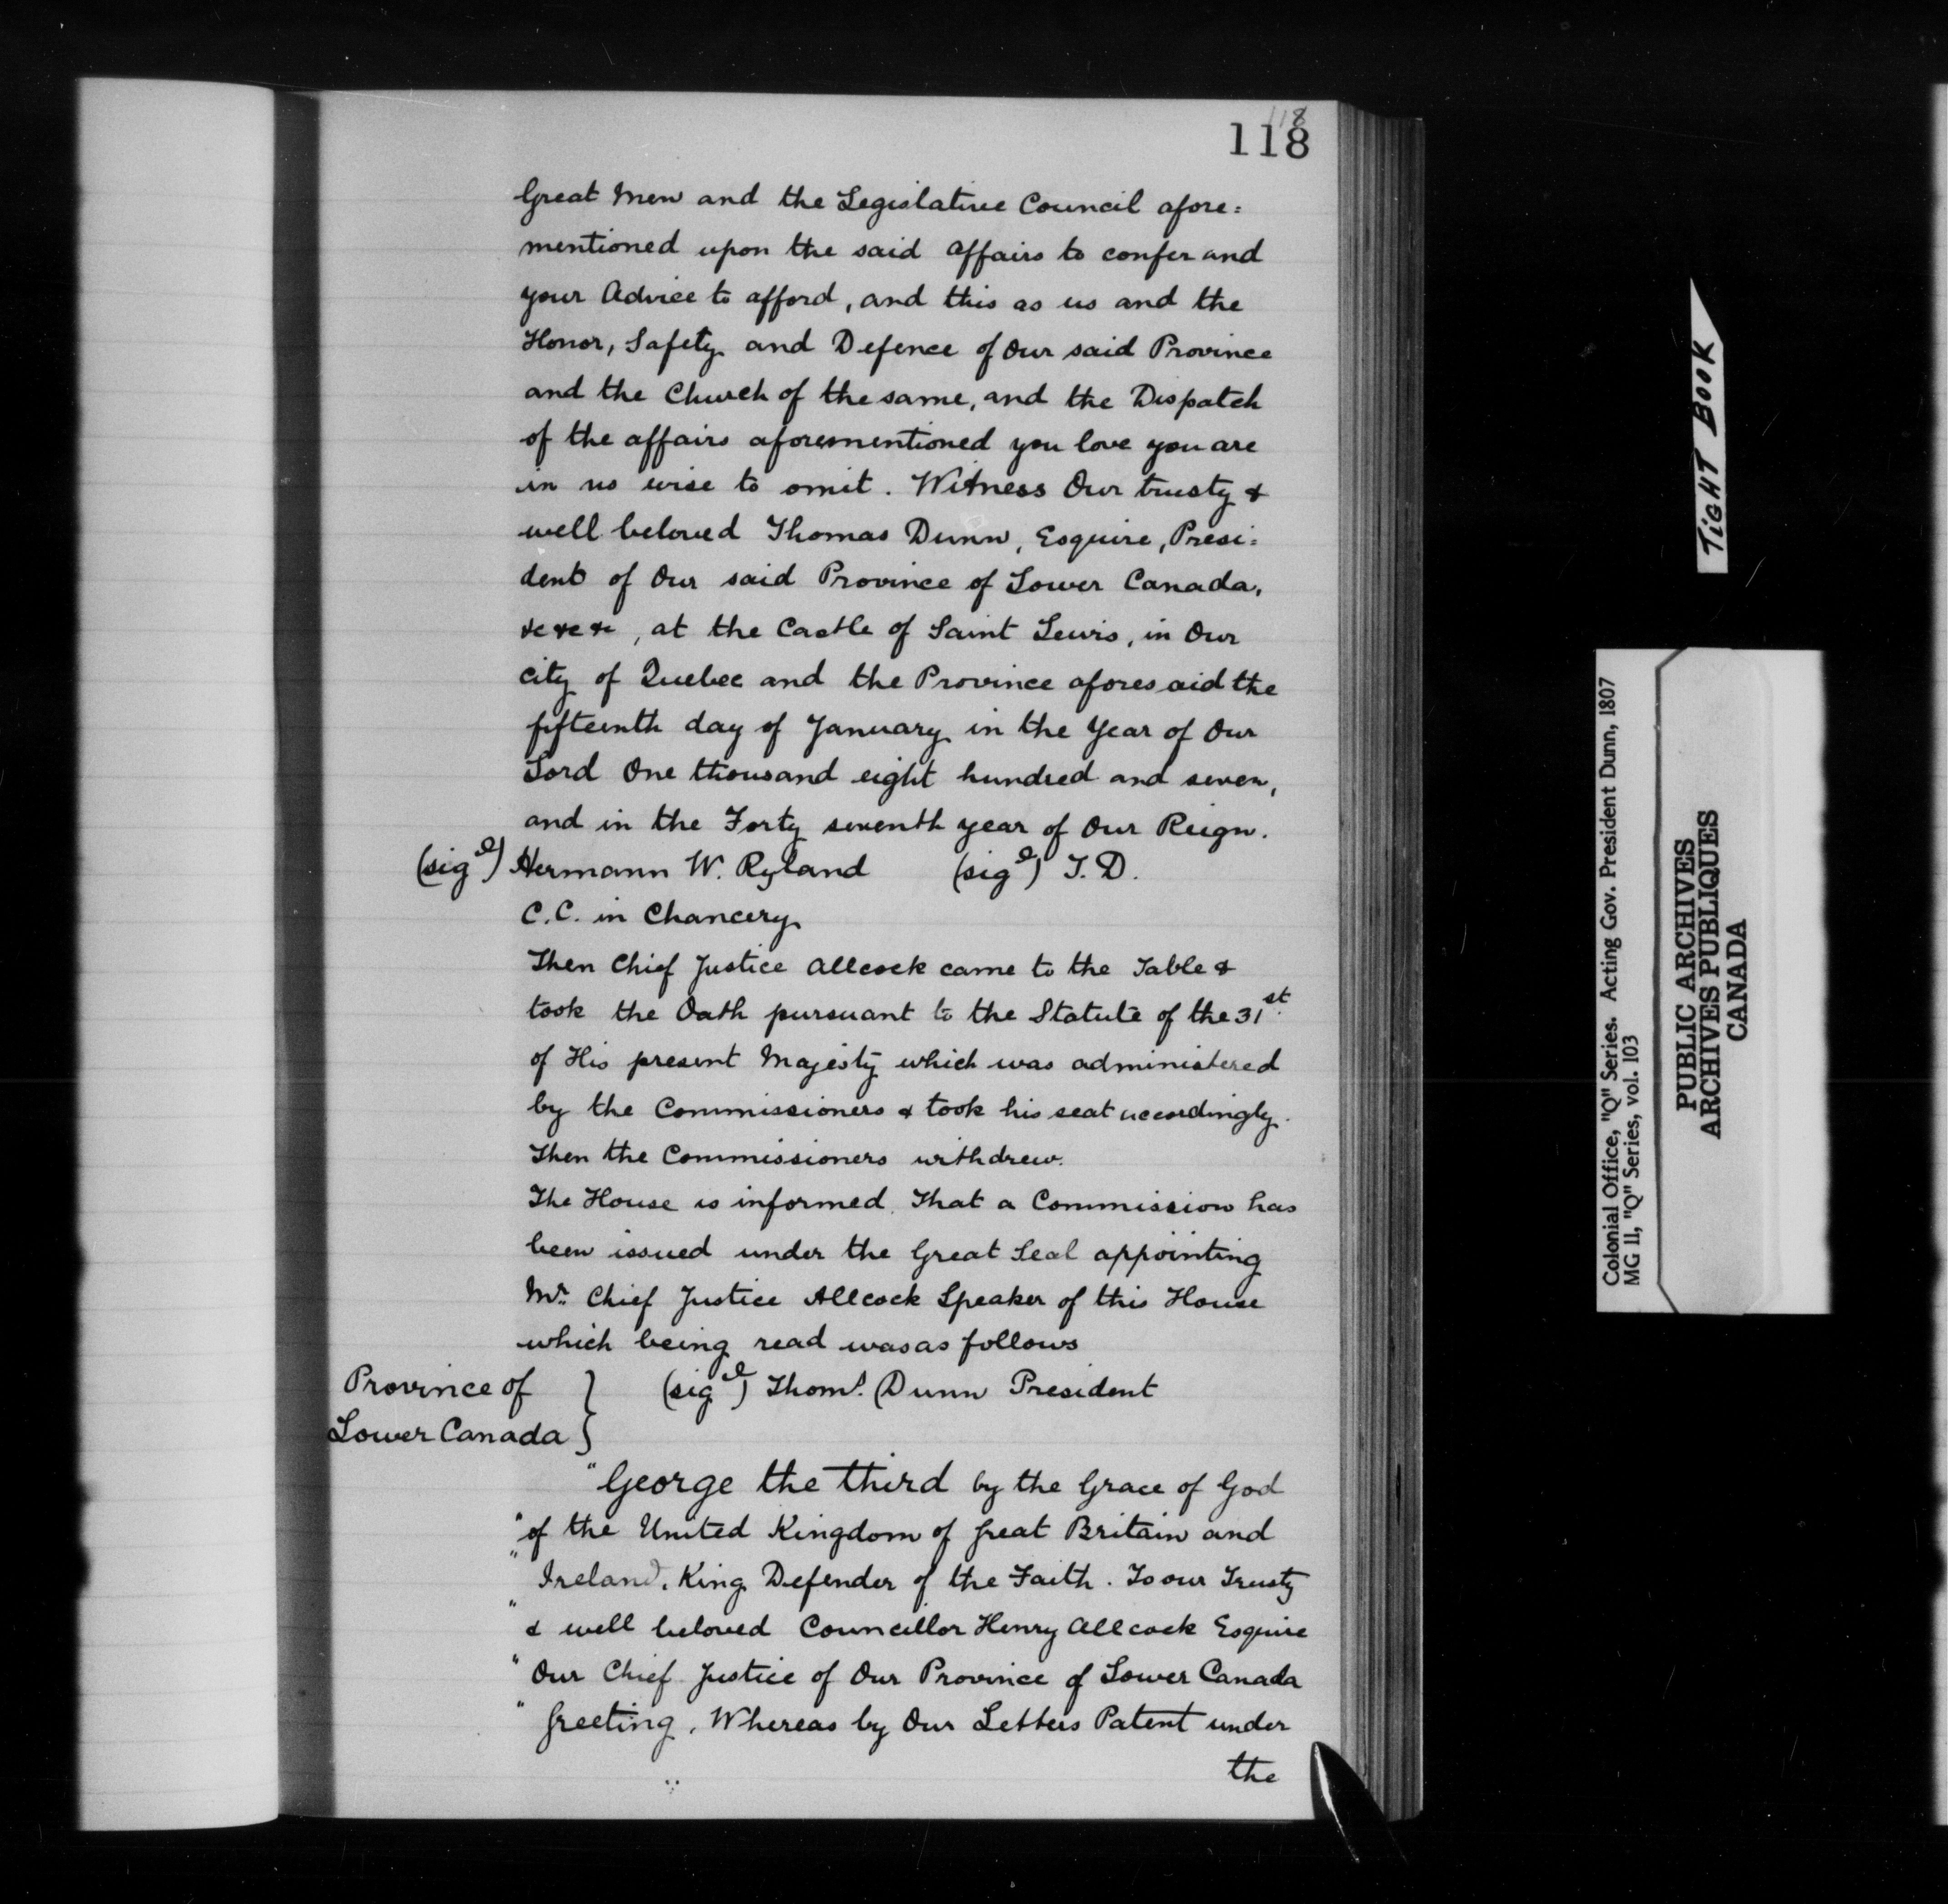 118
118
Great Men and the Legislative Council afore=
mentioned upon the said affairs to confer and
your Advice to afford, and this as us and the
Honor, Safety and Defence of Our said Province
and the Church of the same, and the Dispatch
of the affairs aforementioned you love you are
in no wise to omit. Witness Our trusty &
well beloved Thomas Dunn, Esquire, Presi=
dent of Our said Province of Lower Canada,
&c &c &c, at the Castle of Saint Lewis, in Our
City of Quebec and the Province aforesaid the
fifteenth day of January in the Year of Our
Lord One thousand eight hundred and seven,
and in the Forty seventh year of Our Reign.
(sigd) Hermann W. Ryland (sigd) T. D.
C.C. in Chancery
Then Chief Justice Allcock came to the Table &
took the Oath pursuant to the Statute of the 31st.
of His present Majesty which was administered
by the Commissioners & took his seat accordingly.
Then the Commissioners withdrew.
The House is informed. That a Commission has
been issued under the Great Seal appointing
Mr. Chief Justice Allcock Speaker of this House
which being read was as follows
Province of } (sigd) Thoms. Dunn President
Lower Canada }
"George the third by the Grace of God
"of the United Kingdom of Great Britain and
"Ireland, King Defender of the Faith. To our Trusty
"& well beloved Councillor Henry Allcock Esquire
"Our Chief Justice of Our Province of Lower Canada
"Greeting. Whereas by Our Letters Patent under
the
TIGHT BOOK
Colonial Office, "Q" Series. Acting Gov. President Dunn, 1807
MG 11, "Q" Series, vol. 103
PUBLIC ARCHIVES
ARCHIVES PUBLIQUES
CANADA